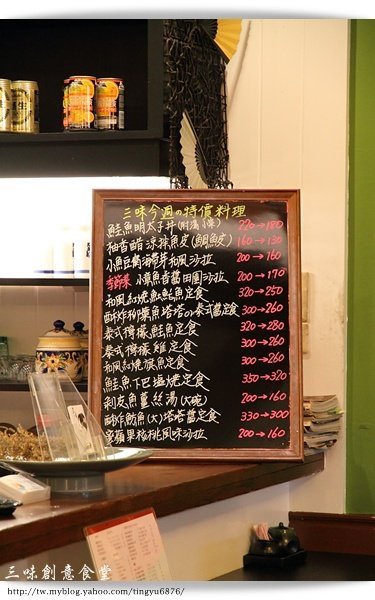 三味今週の特價料理
鮭魚明太子丼(附湯) 220→180
柚香醋涼拌魚皮(鯛魚皮) 160→130
小魚豆腐海芽和風沙拉 200→160
季節菜 小章魚香菇田園沙拉 200→170
和風紅燒魟魚定食 320→250
酥炸柳葉魚塔塔or泰式醬定食 300→260
泰式檸檬鮭魚定食 320→280
泰式檸檬雞定食 300→260
和風紅燒旗魚定食 300→260
鮭魚下巴塩燒定食 350→320
剝皮魚薑絲湯(大碗) 200→160
酥炸魴魚(大)塔塔醬定食 330→300
蘋果核桃風味沙拉 200→160
三味創意食堂
http://tw.myblog.yahoo.com/tingyu6876/